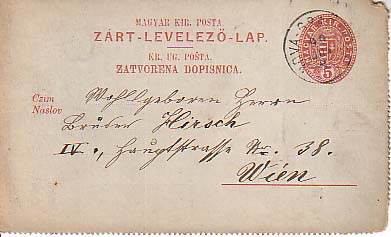 MAGYAR KIR. POSTA.
ZÁRT-LEVELEZŐ-LAP.
KR. UG. POŠTA.
ZATVORENA DOPISNICA.
MAGYAR KIR. POSTA
5
Czim
Naslov
Wohlgeboren Herrn
Brüder Hirsch
IV., Hauptstrasse No. 38.
Wien